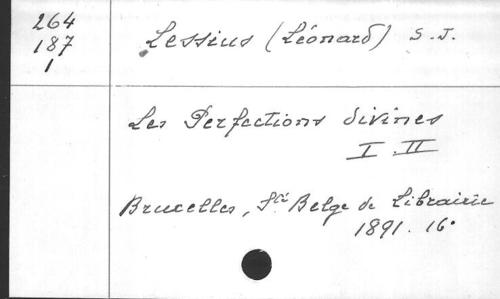 264
187
1
Lessius (Léonard) S.J.
Les Perfections divines
I.II
Bruxelles, Sté Belge de Librairie
1891. 16°